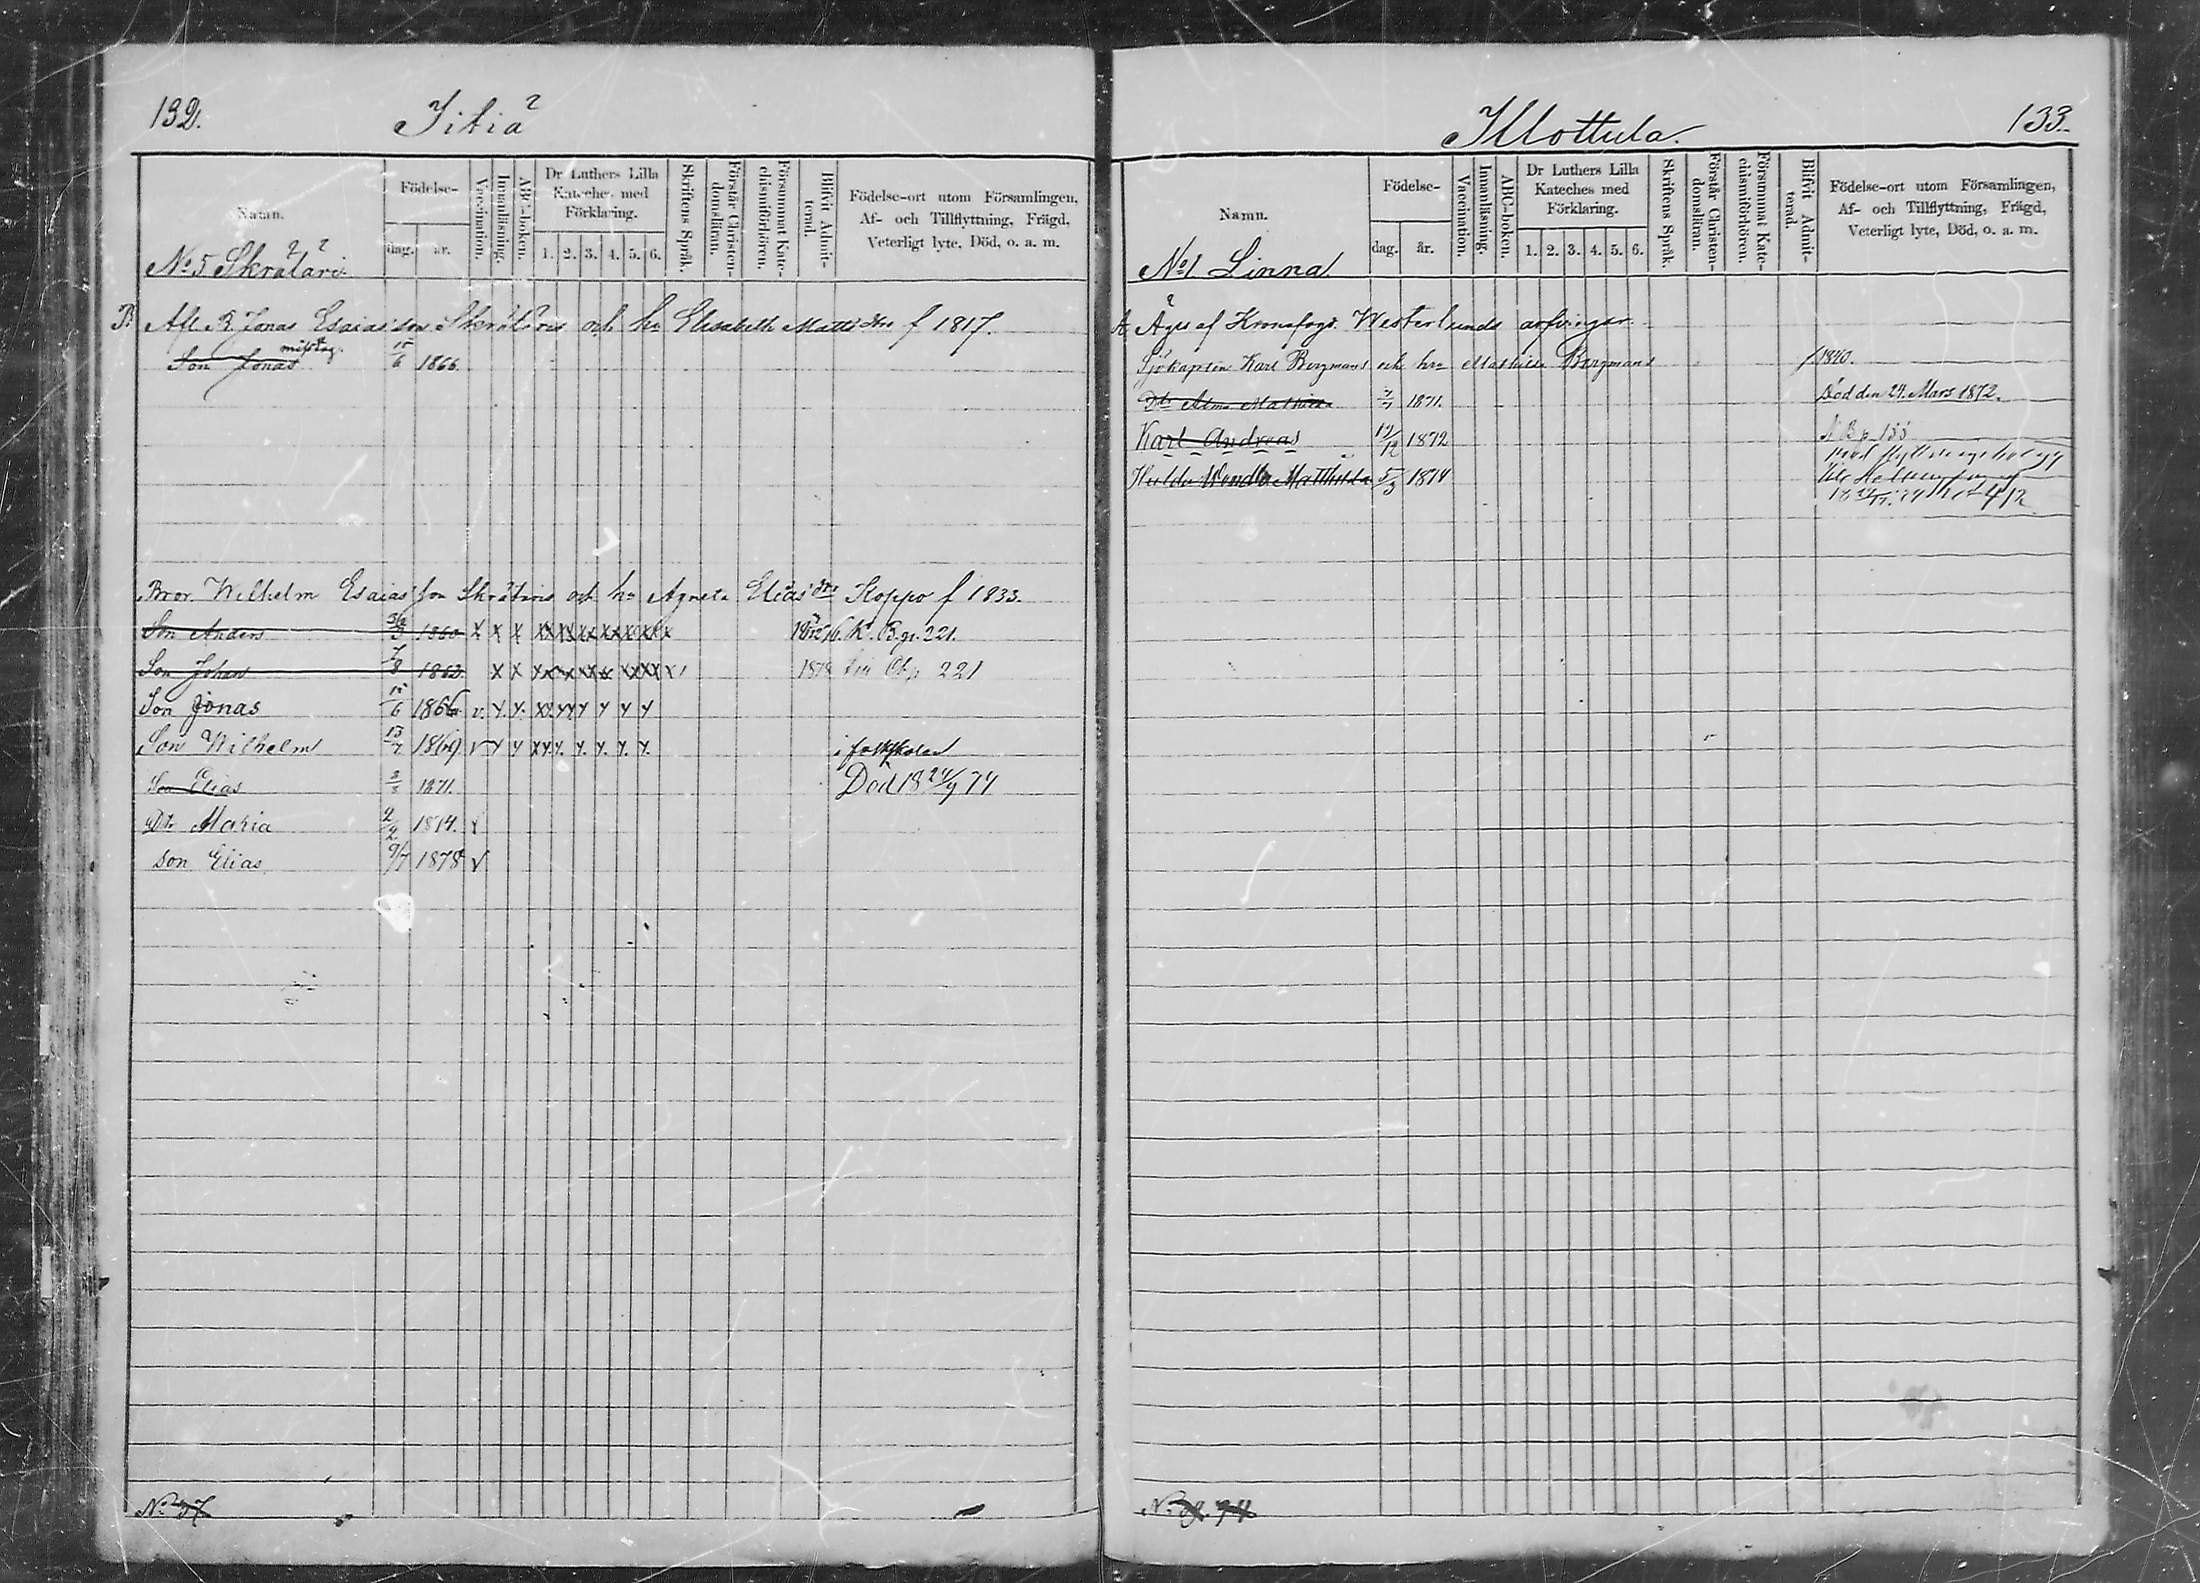 132.
Jitiå
Namn.
Födelse-
dag.
år.
Vaccination.
Innanläsning.
ABC-boken.
Dr Luthers Lilla
Kateches med
Förklaring.
1. 2. 3. 4. 5. 6.
Skriftens Språk.
Förstår Christen-
domsläran.
Försummat Kate-
chismiförhören.
Blifvit Admit-
terad.
Födelse-ort utom Församlingen,
Af- och Tillflyttning, Frägd,
Veterligt lyte, Död, o. a. m.
No 5 Skråtari
B. Afl. R. Jonas Esaiasson Skråtari och ha Elisabeth Mattsdtr f 1817.
misstag.
Son Jonas 15/6 1866.
Bror. Wilhelm Esaiasson Skråtari och ha Agneta Eliasdtr Koppo f 1833.
Son Anders 1860 X X X
K. B. p. 221.
Son Johan 7/8 1862 X X 1878 221
Son Jonas 15/6 1866
Son Wilhelm 13/7 1869 i folkskolan
Son Elias 1871. Död 18 24/9 74
Dtr Maria 2/2 1874.
Son Elias 9/7 1878 V
133.
Klottula.
Namn.
Födelse-
dag.
år.
Vaccination.
Innanläsning.
ABC-boken.
Dr Luthers Lilla
Kateches med
Förklaring.
1. 2. 3. 4. 5. 6.
Skriftens Språk.
Förstår Christen-
domsläran.
Försummat Kate-
chismiförhören.
Blifvit Admit-
terad.
Födelse-ort utom Församlingen,
Af- och Tillflyttning, Frägd,
Veterligt lyte, Död, o. a. m.
No 1 Linna
A. Äges af Kronofogd. Westerlunds arfvingar.
Sjökapten Karl Bergmans och hra Mathilda Bergmans f. 1840.
Dtr Alma Mathilda 1871. Död den 24. Mars 1872.
Karl Andreas 1872
Hulda Wendla Matthilda 5/3 1874